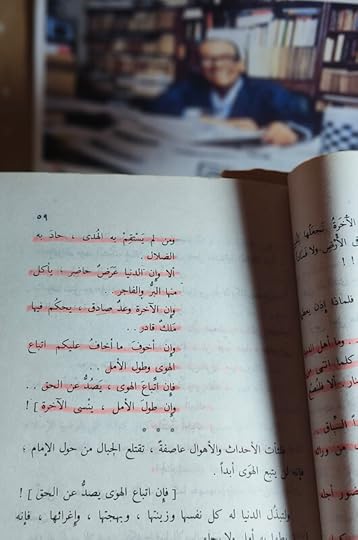 ٥٩
ومن لم يَسْتَقِمْ به الهُدى ، حادَ به
الضلال .
ألا وإن الدنيا عَرَضٌ حاضِر ، يأكل
منها البَرُّ والفاجر . .
وإن الآخرة وعدٌ صادق ، يحكُم فيها
مَلكٌ قادر . .
وإن أخوفَ ما أخافُ عليكم اتباع
الهوى وطول الأمل . .
فإن اتباع الهوى ، يَصدُّ عن الحق . .
وإن طول الأمل ، يُنسى الآخرة ] !
* * *
الأحداث والأهوال عاصفةٌ ، تقتلع الجبال من حول الإمام ؛
فإنه لن يتبع الهَوَى أبداً .
[ فإن اتباع الهوى يصدُّ عن الحق ] !
ولتبذُل الدنيا له كل نفسها وزينتها ، وبهجتها ، وإغرائها ، فإنه
الآخرةُ ، تجعلُها
الأرض ولا
! !
فلماذا إذن
، وما أهل
كلما
السباق
من
أجله